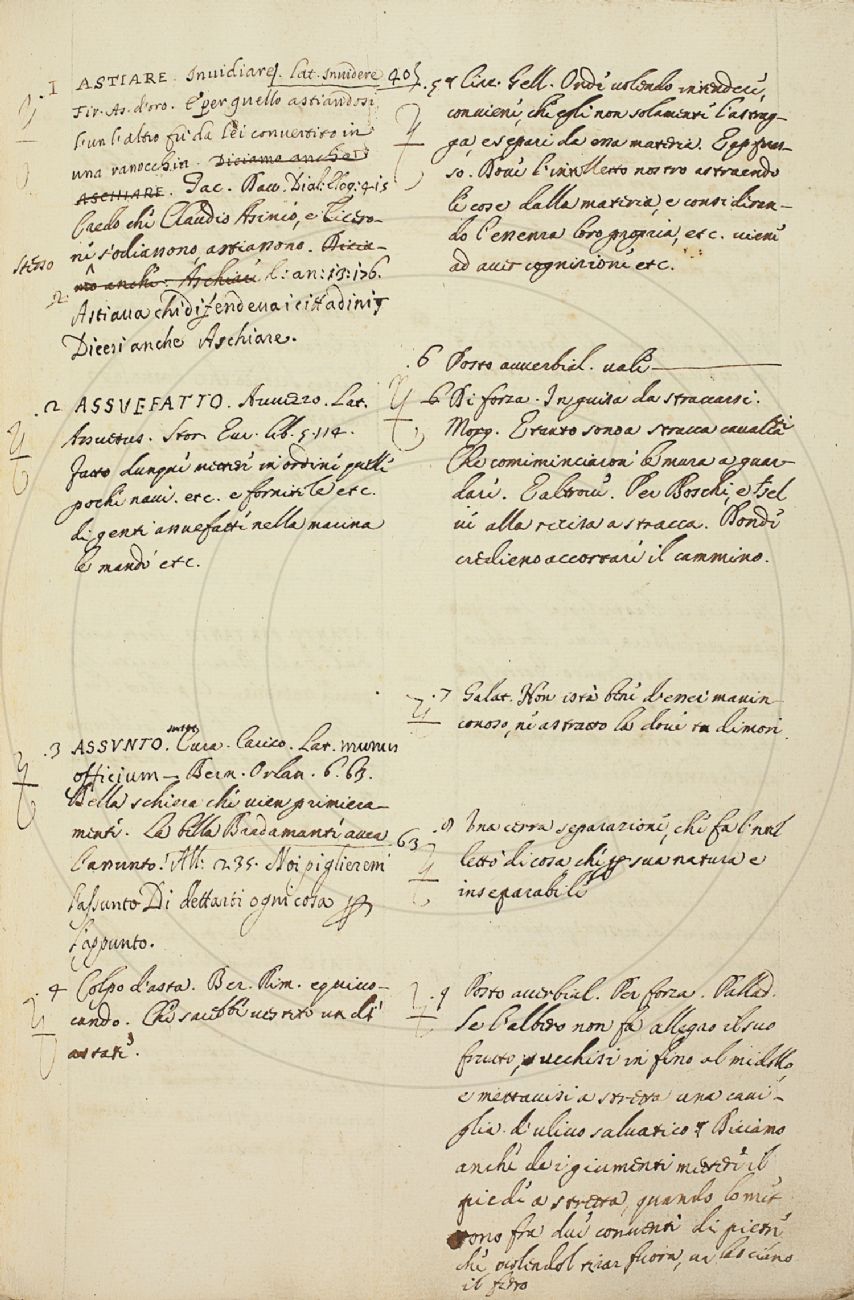 .1 ASTIARE. Invidiare. Lat. Invidere 405
Fir. As. d'oro. E per quello astiandosi
l'un l'altro fù da lei convertito in
una ranocchia. Diciamo anche
ASCHIARE. Tac. Dav. Dial. Eloq: 415
Credo che Claudio Asinio, e Cicero-
ne s'odiassono, astiassono. Dicia-
stesso
mo anche: Aschiare l: an: 13: 176.
2: Astiava chi difendeva i cittadini
Dicesi anche Aschiare.
.2 ASSUEFATTO. Avvezzo. Lat.
Assuetus. Stor. Eur. lib. 5. 114.
Fatto dunque mettere in ordine quelle
poche navi. etc. e fornitele etc.
di genti assuefatte nella marina
le mandò etc.
.3 ASSUNTO. Cura. Carico. Lat. munus
officium — Bern. Orlan. 6. 63.
Bella schiera che vien primiera-
mente. La bella Bradamante avea 63
l'assunto. All: 235. Noi piglieremo
l'assunto Di dettarti ogni cosa
l'appunto.
.4 Colpo d'asta. Ber. Rim. equivo-
cando. Che sarebbe
astate.
.5 Circ. Gell. Onde volendo intendere,
conviene, che egli non solamente l'astrag-
ga, e separi da essa materia. E appres-
so. Dove l'intelletto nostro astraendo
le cose dalla materia, e consideran-
do l'essenza loro propria, etc. viene
ad aver cognizione etc.
.6 Posto avverbial. vale —
6 Di forza. In guisa da straccarsi.
Morg. E tanto sono a stracca cavalcati
Che comiminciaron le mura a guar-
dare. E altrove. Per Boschi, e
alla a stracca. Donde
credieno accortare il cammino.
.7 Galat. Non istà bene d'esser manin-
conoso, nè astratto là dove tu dimori.
.8 Una certa separazione, che fa l'intel
letto di cosa che sua natura è
inseparabile
.9 Posto avverbial. Per forza. Pallad.
Se l'albero non fa allegro il suo
frutto, succhisi in fino al midollo,
e mettavisi a stretta una cavi-
glia d'ulivo salvatico. Diciamo
anche de i giumenti mettere il
piede a stretta, quando lo met
tono fra due conventi di pietre
che volendol tirar fuora, vi lasciano
il ferro